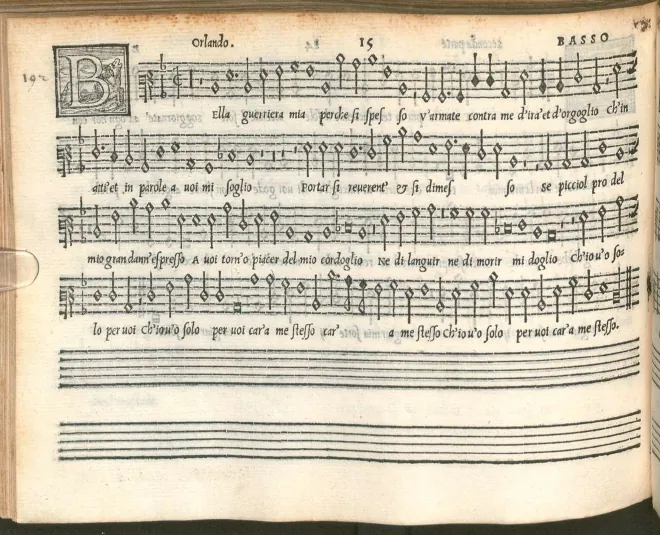 Orlando. 15 BASSO
192
BElla guerriera mia perche si spes so v'armate contra me d'ira'et d'orgoglio ch'in
atte'et in parole a uoi mi soglio Portar si reuerent' & si dimes so se picciol pro del
mio gran dann'espresso A uoi torn'o piacer del mio cordoglio Ne di languir ne di morir mi doglio Ch'io u'o so=
lo per uoi Ch'io u'o solo per uoi car'a me stesso car' a me stesso Ch'io u'o solo per uoi car'a me stesso.